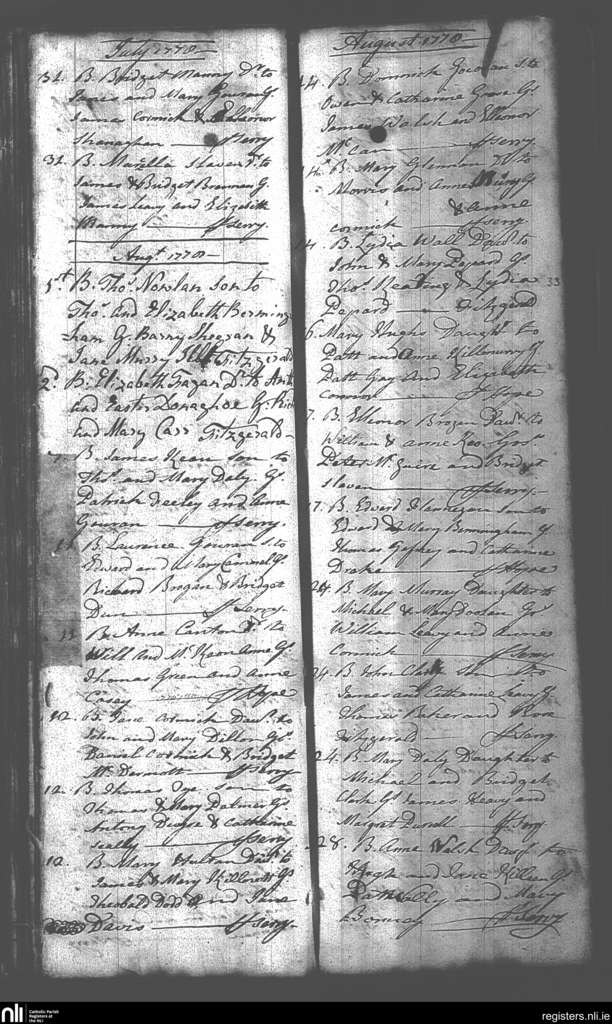 July 1778
31. B. Bridget Manny Dr. to
James and Mary Gouran Gs.
James Cormick & Elleanor
Shanaghan Ff Serry
31. B. Marella Slaven Dr. to
James & Bridget Brennan G.
James Leavy and Elizabeth
Manny Ff Serry.
Augt. 1778
1st. B. Thos. Nowlan son to
Thos. and Elizabeth Berming
ham G. Barny &
Jane Murry Fitzgerald
2d. B. Elizabeth Fagan Dr. to
and Easter Donaghoe G.
and Mary Carr Fitzgerald
B. James Kean son to
Thos. and Mary Daly Gs
Patrick Feeley and Anne
Gouran Ff Serry.
B. Laurence Gouran s. to
Edward and Mary Gs.
Richard Brogan & Bridget
Dunn Ff Serry.
B. Anne Canton Dr. to
Will and Anne Gs
Thomas Green and Anne
Casey Ff Hope
12. B. Jane Cormick Daur. to
John and Mary Dillon Gs.
Daniel Cormick & Bridget
McDermott Ff Serry
12. B. Thomas son to
Thomas & Mary Dalton Gs
Antony & Catherine
Scally Ff Serry
12. B. Mary Daur. to
James & Mary Gs
Theobald Dodd and Jane
Davis Ff Serry.
August 1778
14. B. Dominick Gouran s. to
Owen & Catharine Gs
James Walsh and Elleonor
McCan Ff Serry.
14. B. Mary Glennon Dr. to
Morris and Anne G
& Anne
Cormick Ff Serry.
14. B. Lydia Wall Daur. to
John & Mary Pepard Gs.
Thos. Keating & Lydia 33
Pepard Fitzgerald
16. Mary Hughs Daughr. to
Patt and Anne G
Patt Gay And Elizabeth
Connor Ff Hope
17. B. Elleonor Brogan Daur. to
William & Anne Keo.
Peter McGuire and Bridget
Slaven Ff Serry.
17. B. Edward Flannagan son to
Edward & Mary Birmingham G
Thomas Gafney and Catharine
Drake Ff Hope
24. B. Mary Murray Daughter to
Michael & Mary Doolan Gs
William Leavy and Anne
Cormick Ff Serry
24. B. John Clark son to
James and Catharine Gs
Thomas Baker and Rose
Fitzgerald Ff Serry
24. B. Mary Daly Daughter to
Michael and Bridget
Clark Gs James Heavy and
Margret Ff Serry
28. B. Anne Welsh Daur. to
Hugh and Jane Killeen Gs
Patt Kelly and Mary
Ff Serry
nli
Catholic Parish
Registers at
the NLI
registers.nli.ie